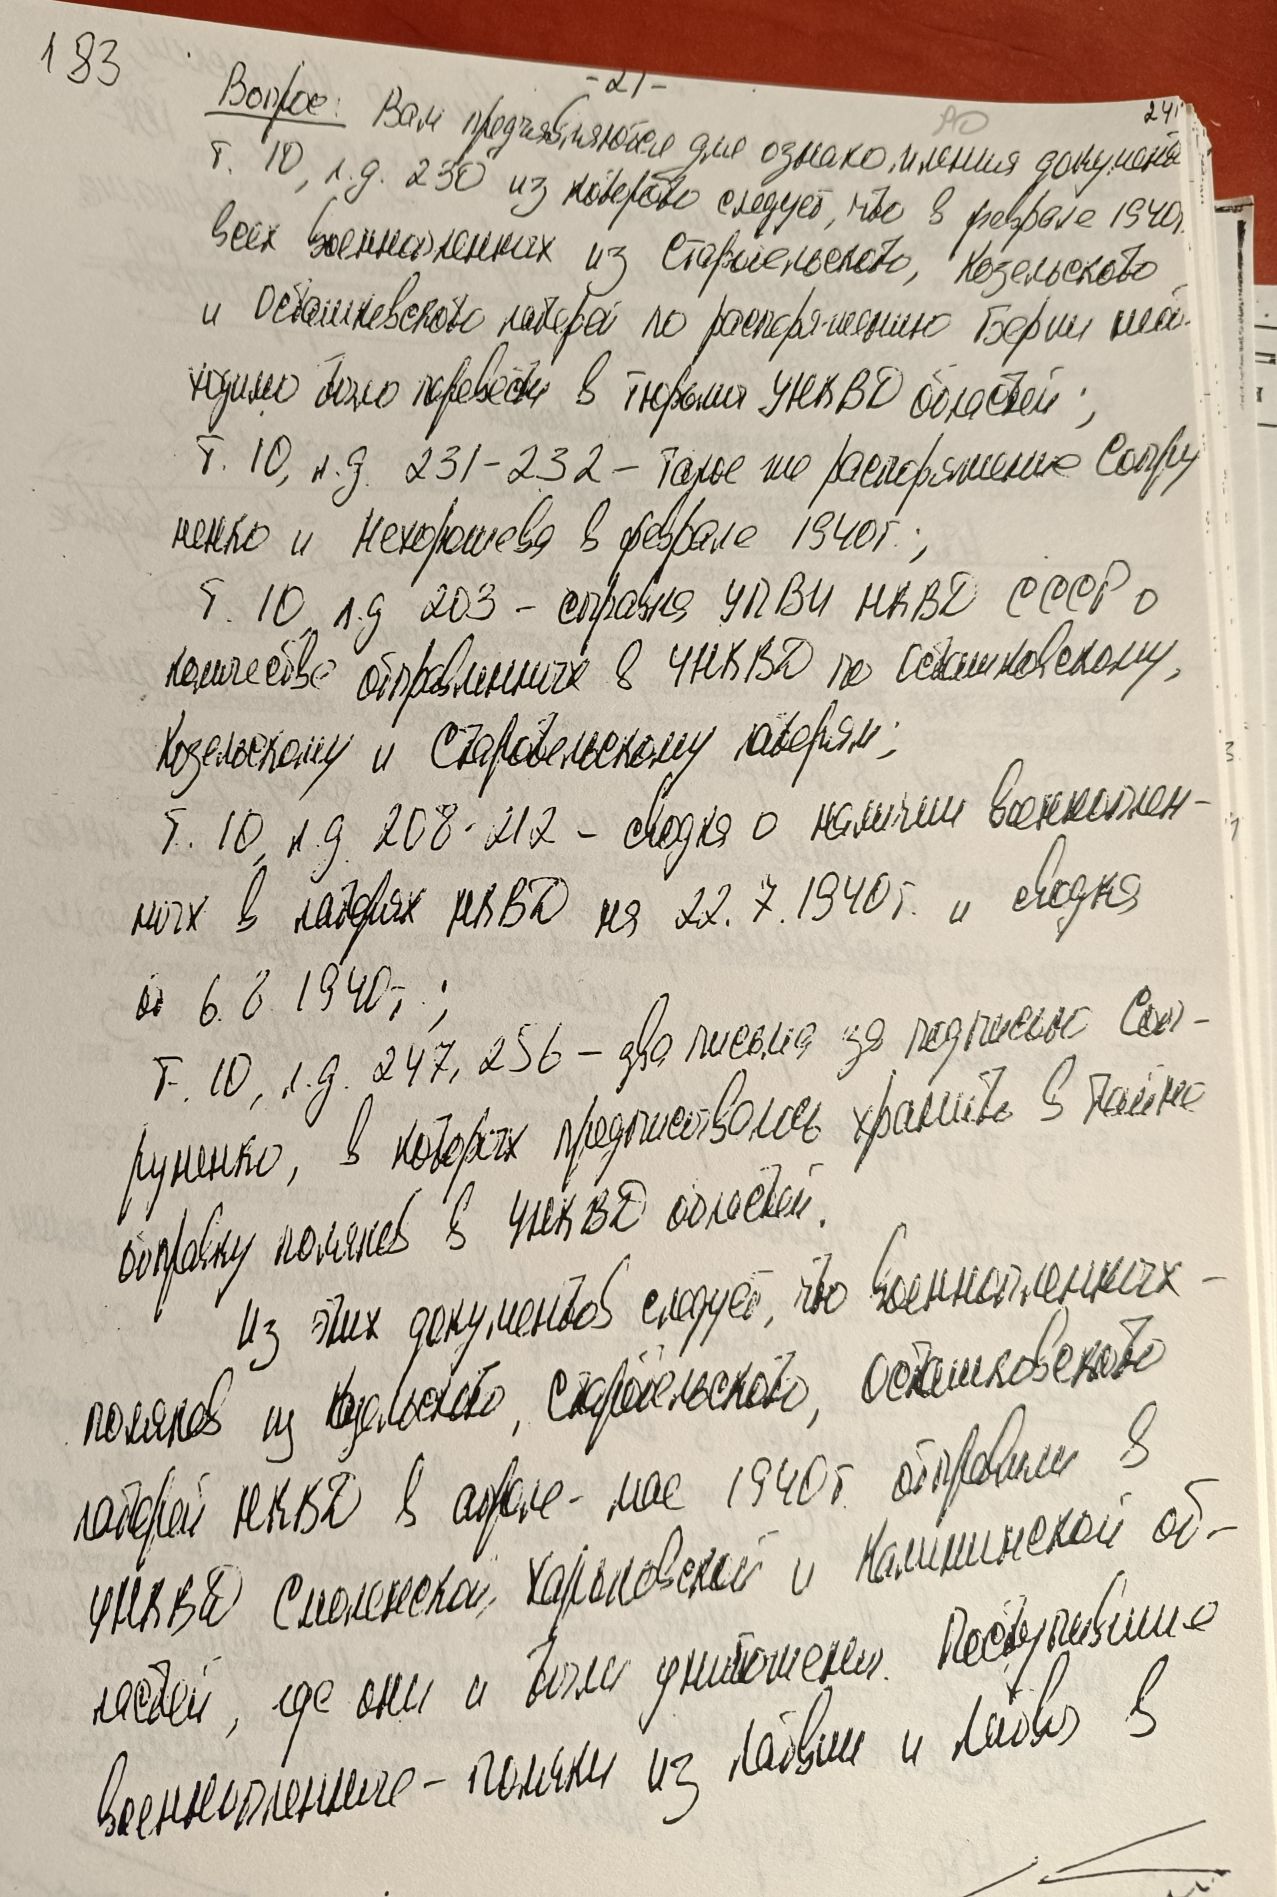 183
-21-
241
Вопрос: Вам предъявляются для ознакомления документы
т. 10, л.д. 230 из которого следует, что в феврале 1940г.
всех военнопленных из Старобельского, Козельского
и Осташковского лагерей по распоряжению Берии
было перевести в тюрьмы УНКВД областей;
т. 10, л.д. 231-232 – такое же распоряжение Сопру
ненко и Нехорошева в феврале 1940г.;
т. 10 л.д 203 – справка УПВИ НКВД СССР о
количестве отправленных в УНКВД по Осташковскому,
Козельскому и Старобельскому лагерям;
т. 10, л.д. 208-212 – сводка о наличии военноплен-
ных в лагерях НКВД на 22.7.1940г. и сводка
от 6.8.1940г.;
т. 10, л.д. 247, 256 – два письма за подписью Соп-
руненко, в которых предписывалось хранить в тайне
отправку поляков в УНКВД областей.
Из этих документов следует, что военнопленных -
поляков из Козельского, Старобельского, Осташковского
лагерей НКВД в апреле - мае 1940г. отправили в
УНКВД Смоленской, Харьковской и Калининской об-
ластей, где они и были уничтожены. Поступившие
военнопленные – поляки из Латвии и Литвы в